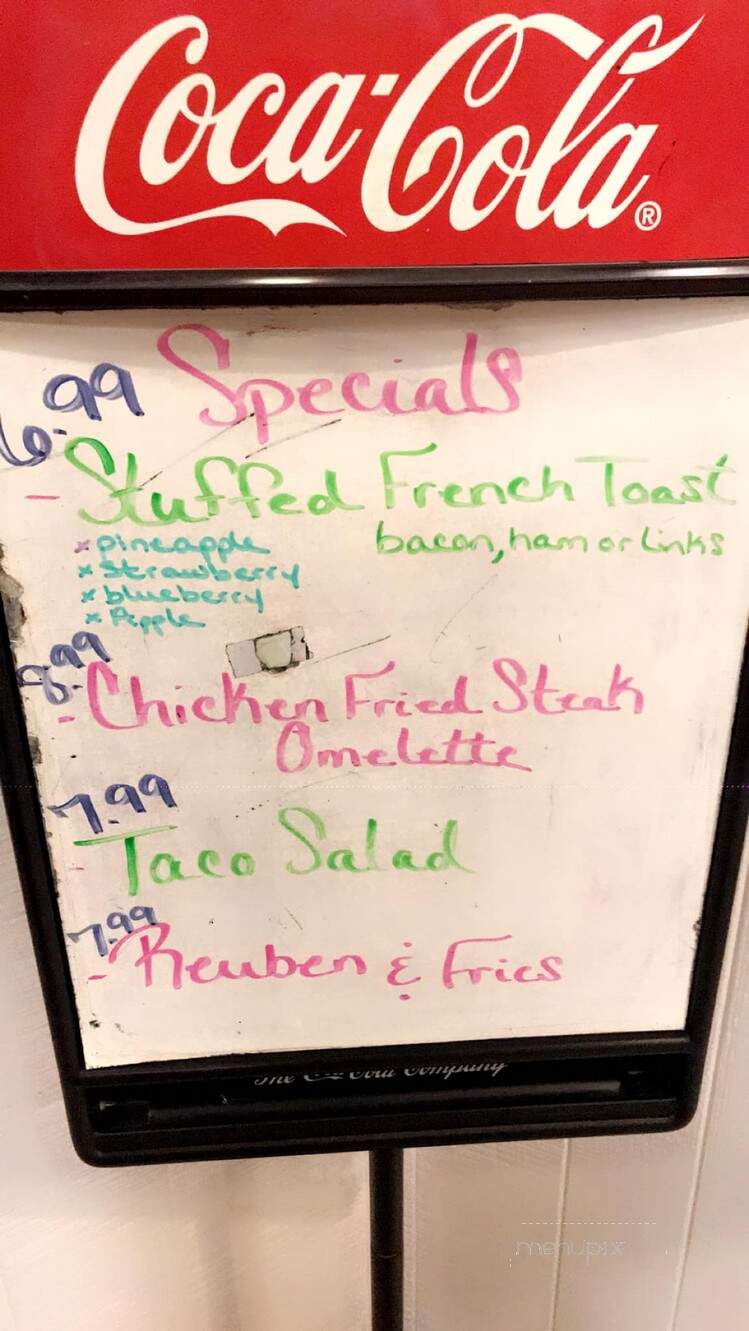 Coca-Cola®
Specials
6.99
- Stuffed French Toast
bacon, ham or links
x pineapple
x strawberry
x blueberry
x Apple
8.99
- Chicken Fried Steak
Omelette
7.99
- Taco Salad
7.99
- Reuben & Fries
The Coca-Cola Company
menupix